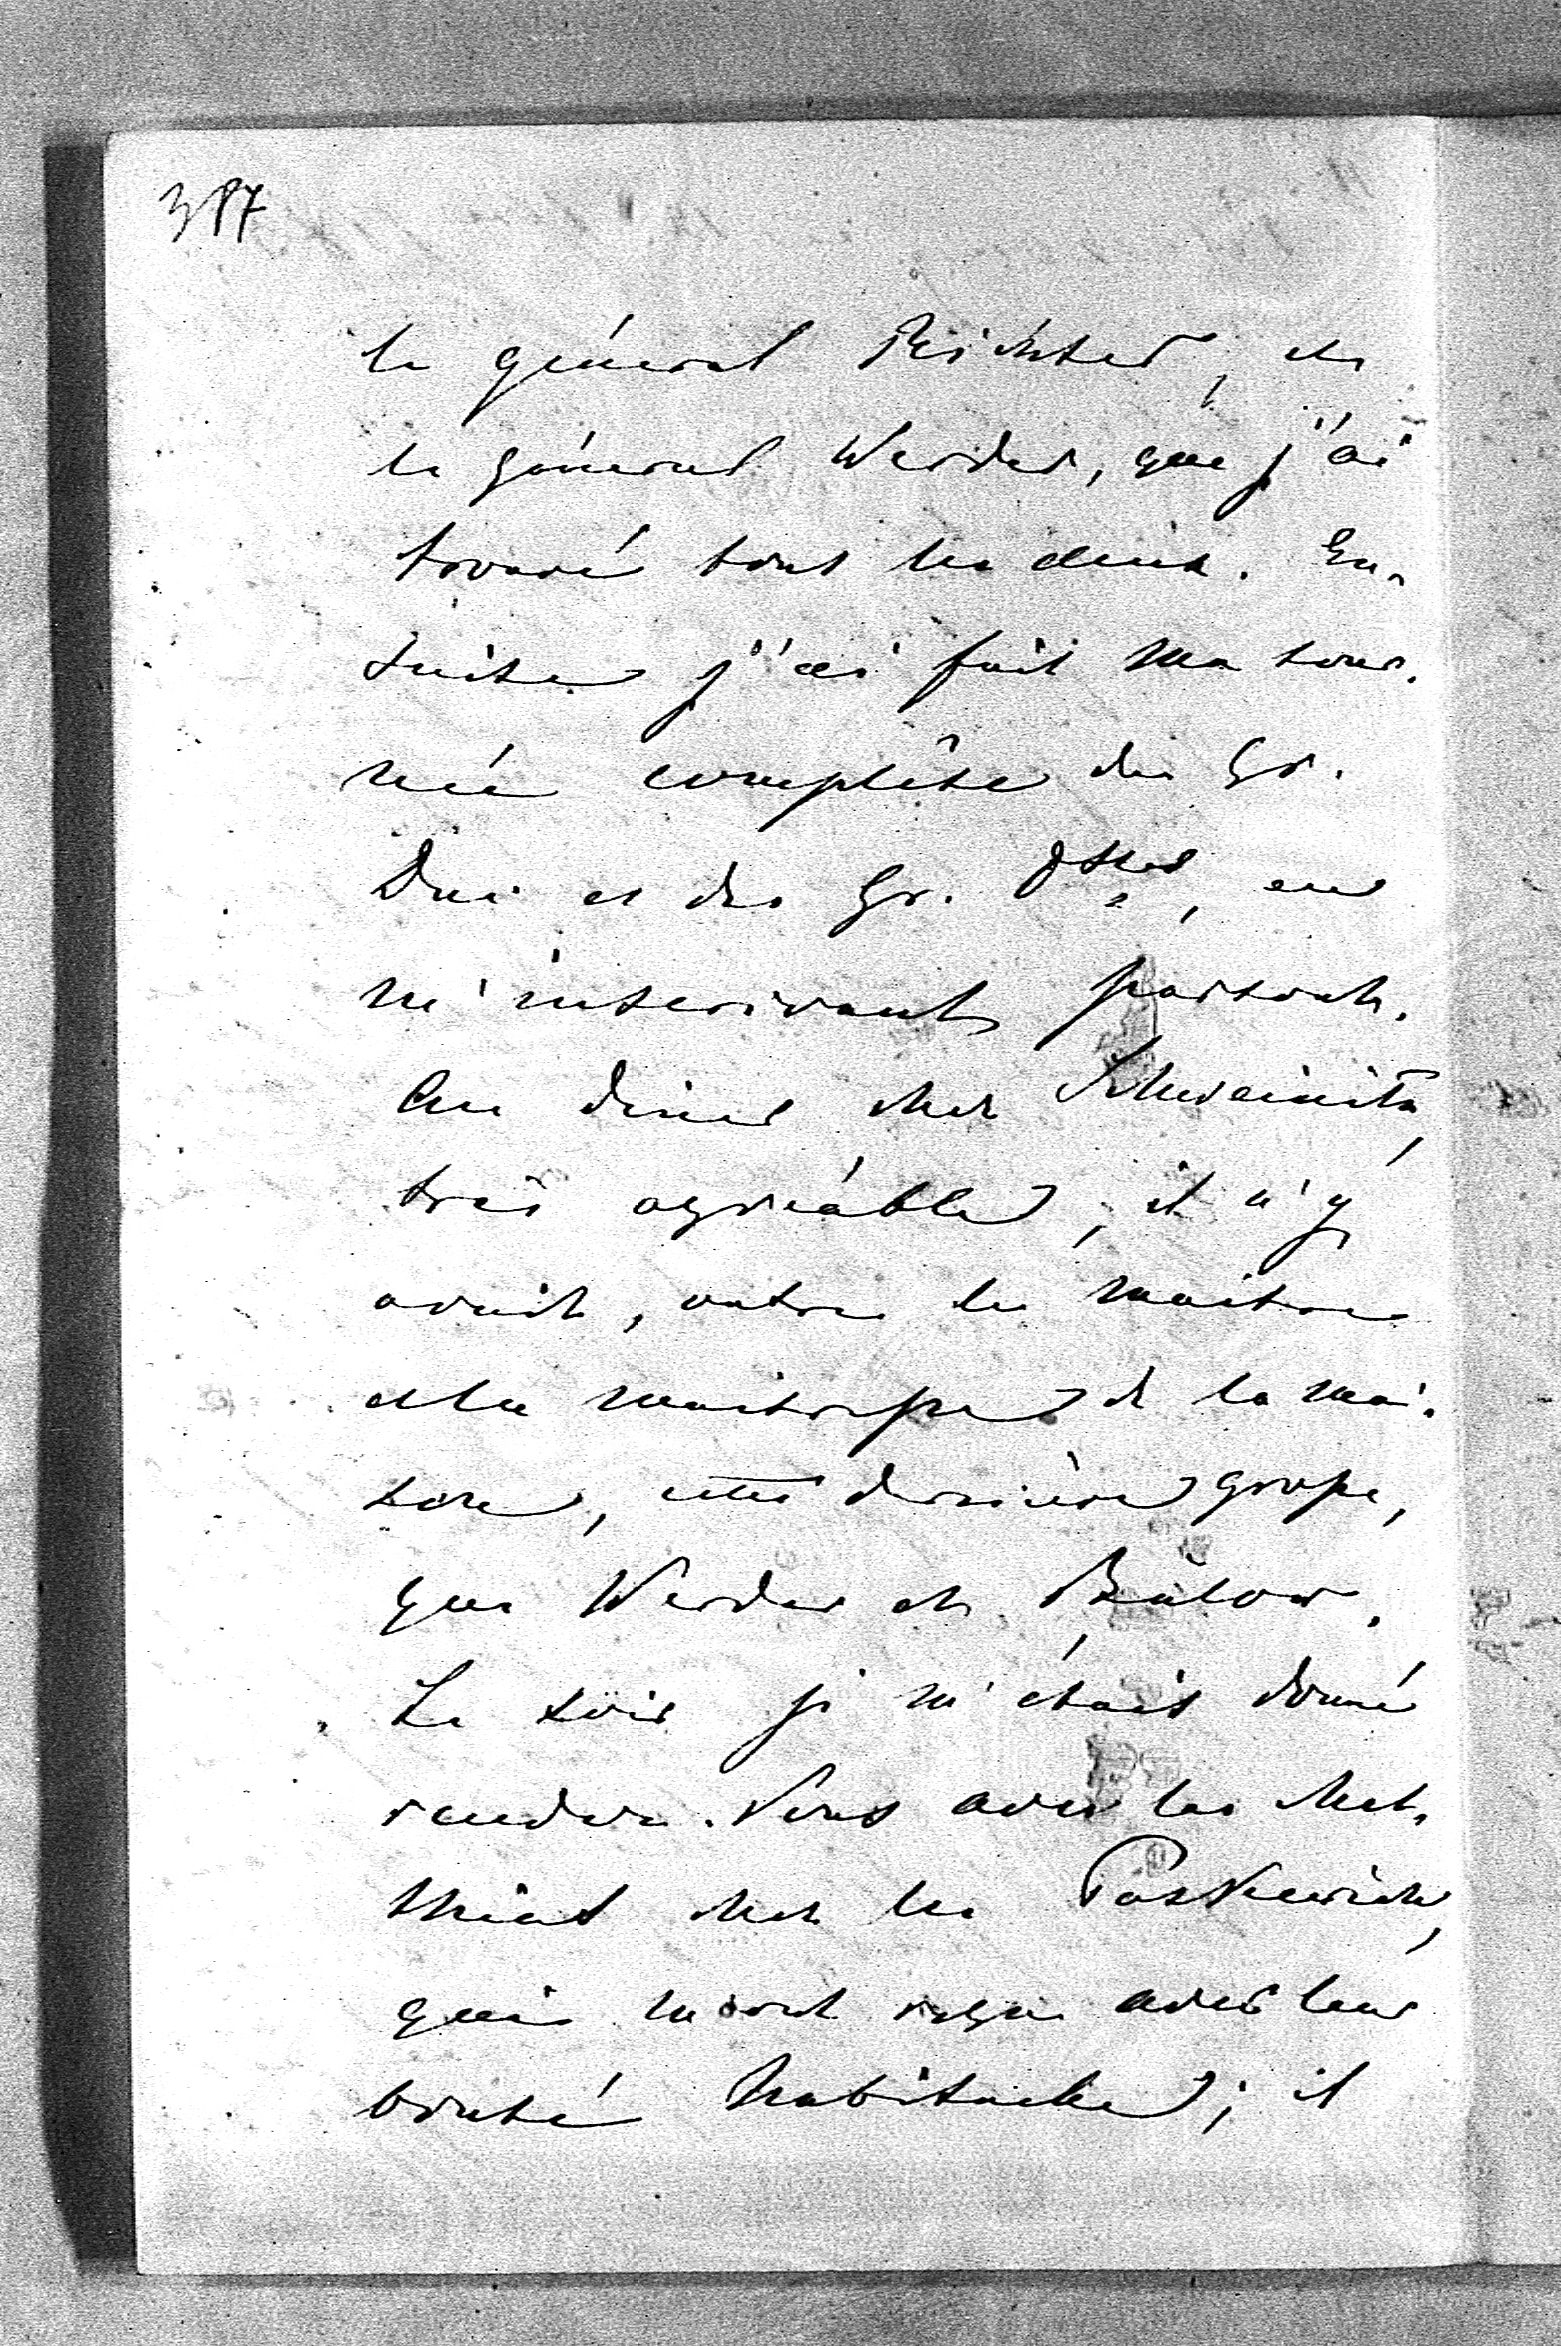 387
le général Richter, et
le général Werder, que j'ai
trouvé tous les deux. En-
suite j'ai fait ma tour-
née complête des Gr.
Duc et des Gr. Dsses, en
m'inscrivant partout.
Au diner chez Schweinitz,
très agréable, il n'y
avait, outre le maitre
et la maitresse de la mai-
son, cette dernière grosse,
que Werder et Bülow.
Le soir je m'étais donné
rendez-vous avec les
chez les Paskewich,
qui m'ont reçu avec leur
bonté habituelle; il